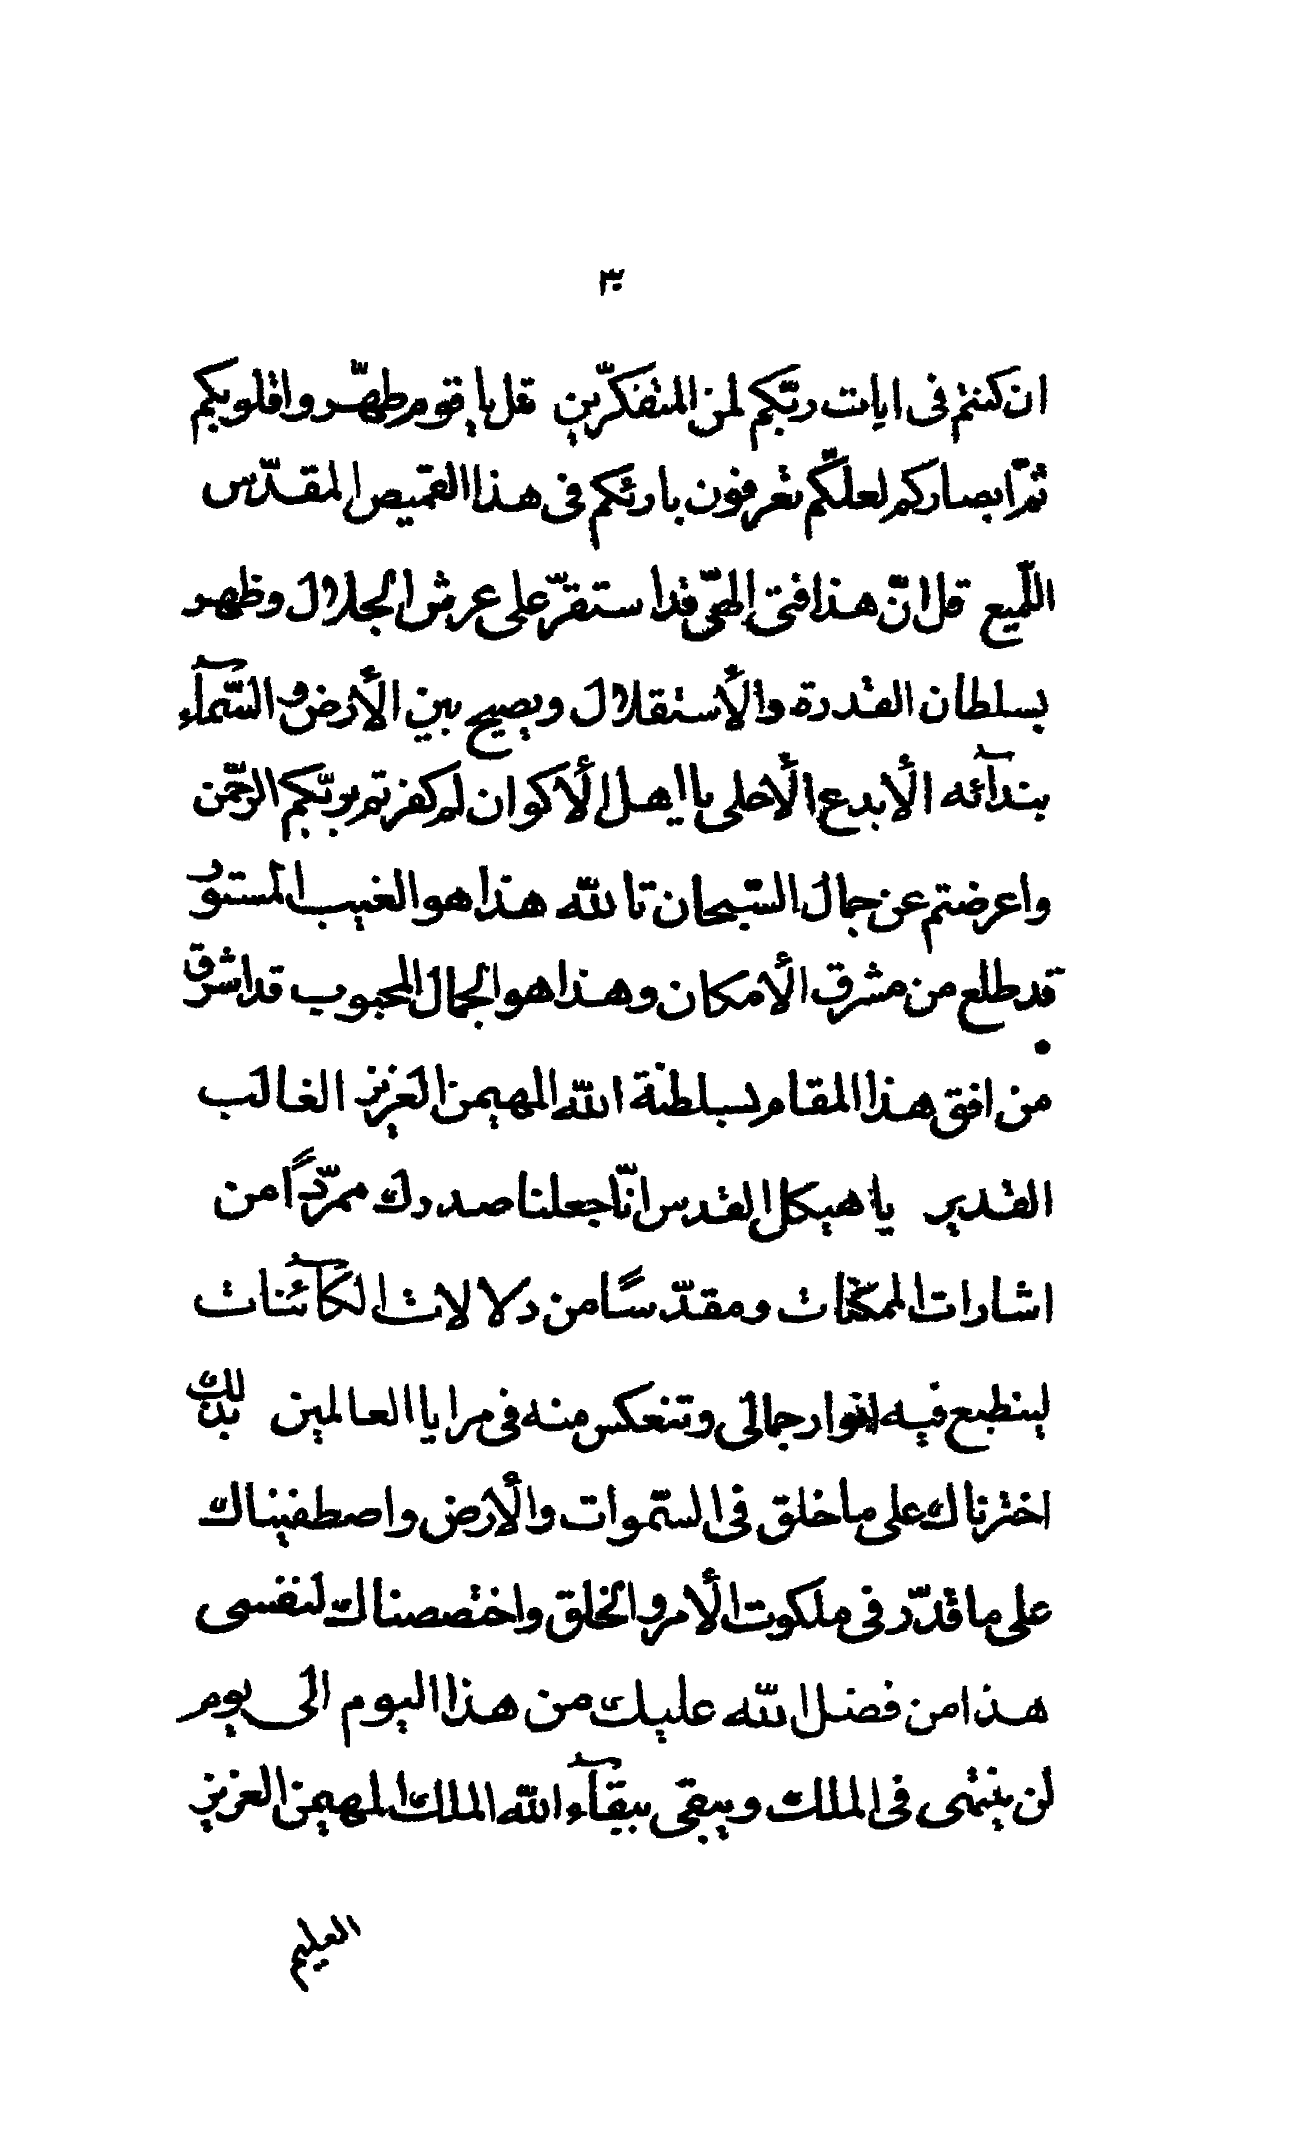 ٣٠
ان كنتم فى ايات ربّكم لمن المتفكّرين قل يا قوم طهّروا قلوبكم
ثمّ ابصاركم لعلّكم تعرفون بارئكم فى هذا القميص المقدّس
اللّميع قل انّ هذا فتى الهىّ قد استقرّ على عرش الجلال وظهر
بسلطان القدرة والأستقلال ويصيح بين الأرض والسّمآء
بندآئه الأبدع الأحلى يا اهل الأكوان لم كفرتم بربّكم الرحّمن
واعرضتم عن جمال السّبحان تالله هذا هو الغيب المستور
قد طلع من مشرق الأمكان وهذا هو الجمال المحبوب قد اشرق
من افق هذا المقام بسلطنة الله المهيمن العزيز الغالب
القدير يا هيكل القدس انّا جعلنا صدرك ممرّدًا من
اشارات الممكنات ومقدّسًا من دلالات الكآئنات
لينطبع فيه انوار جمالى وتنعكس منه فى مرايا العالمين بذلك
اخترناك على ما خلق فى السّموات والأرض واصطفيناك
على ما قدّر فى ملكوت الأمر والخلق واختصصناك لنفسى
هذا من فضل الله عليك من هذا اليوم الى يوم
لن ينتهى فى الملك ويبقى ببقآء الله الملك المهيمن العزيز
العليم